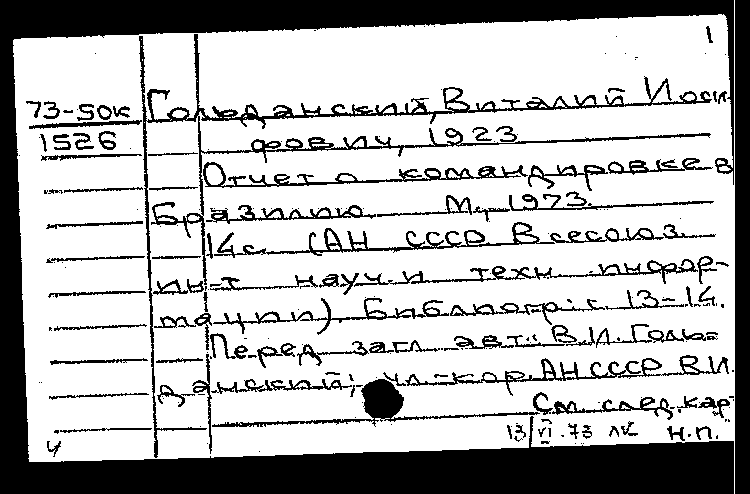 1
73-5ок Гольданский, Виталий Иоси-
1526 фович, 1923
Отчет о командировке в
Бразилию. М., 1973.
14 с. (АН СССР Всесоюз.
ин-т науч. и техн. инфор-
мации). Библиогр.: с. 13-14.
Перед загл. авт.: В.И. Голь-
данский, чл.-кор. АН СССР В.И
См. след. кар
13/VI.73 лк н.п.
4